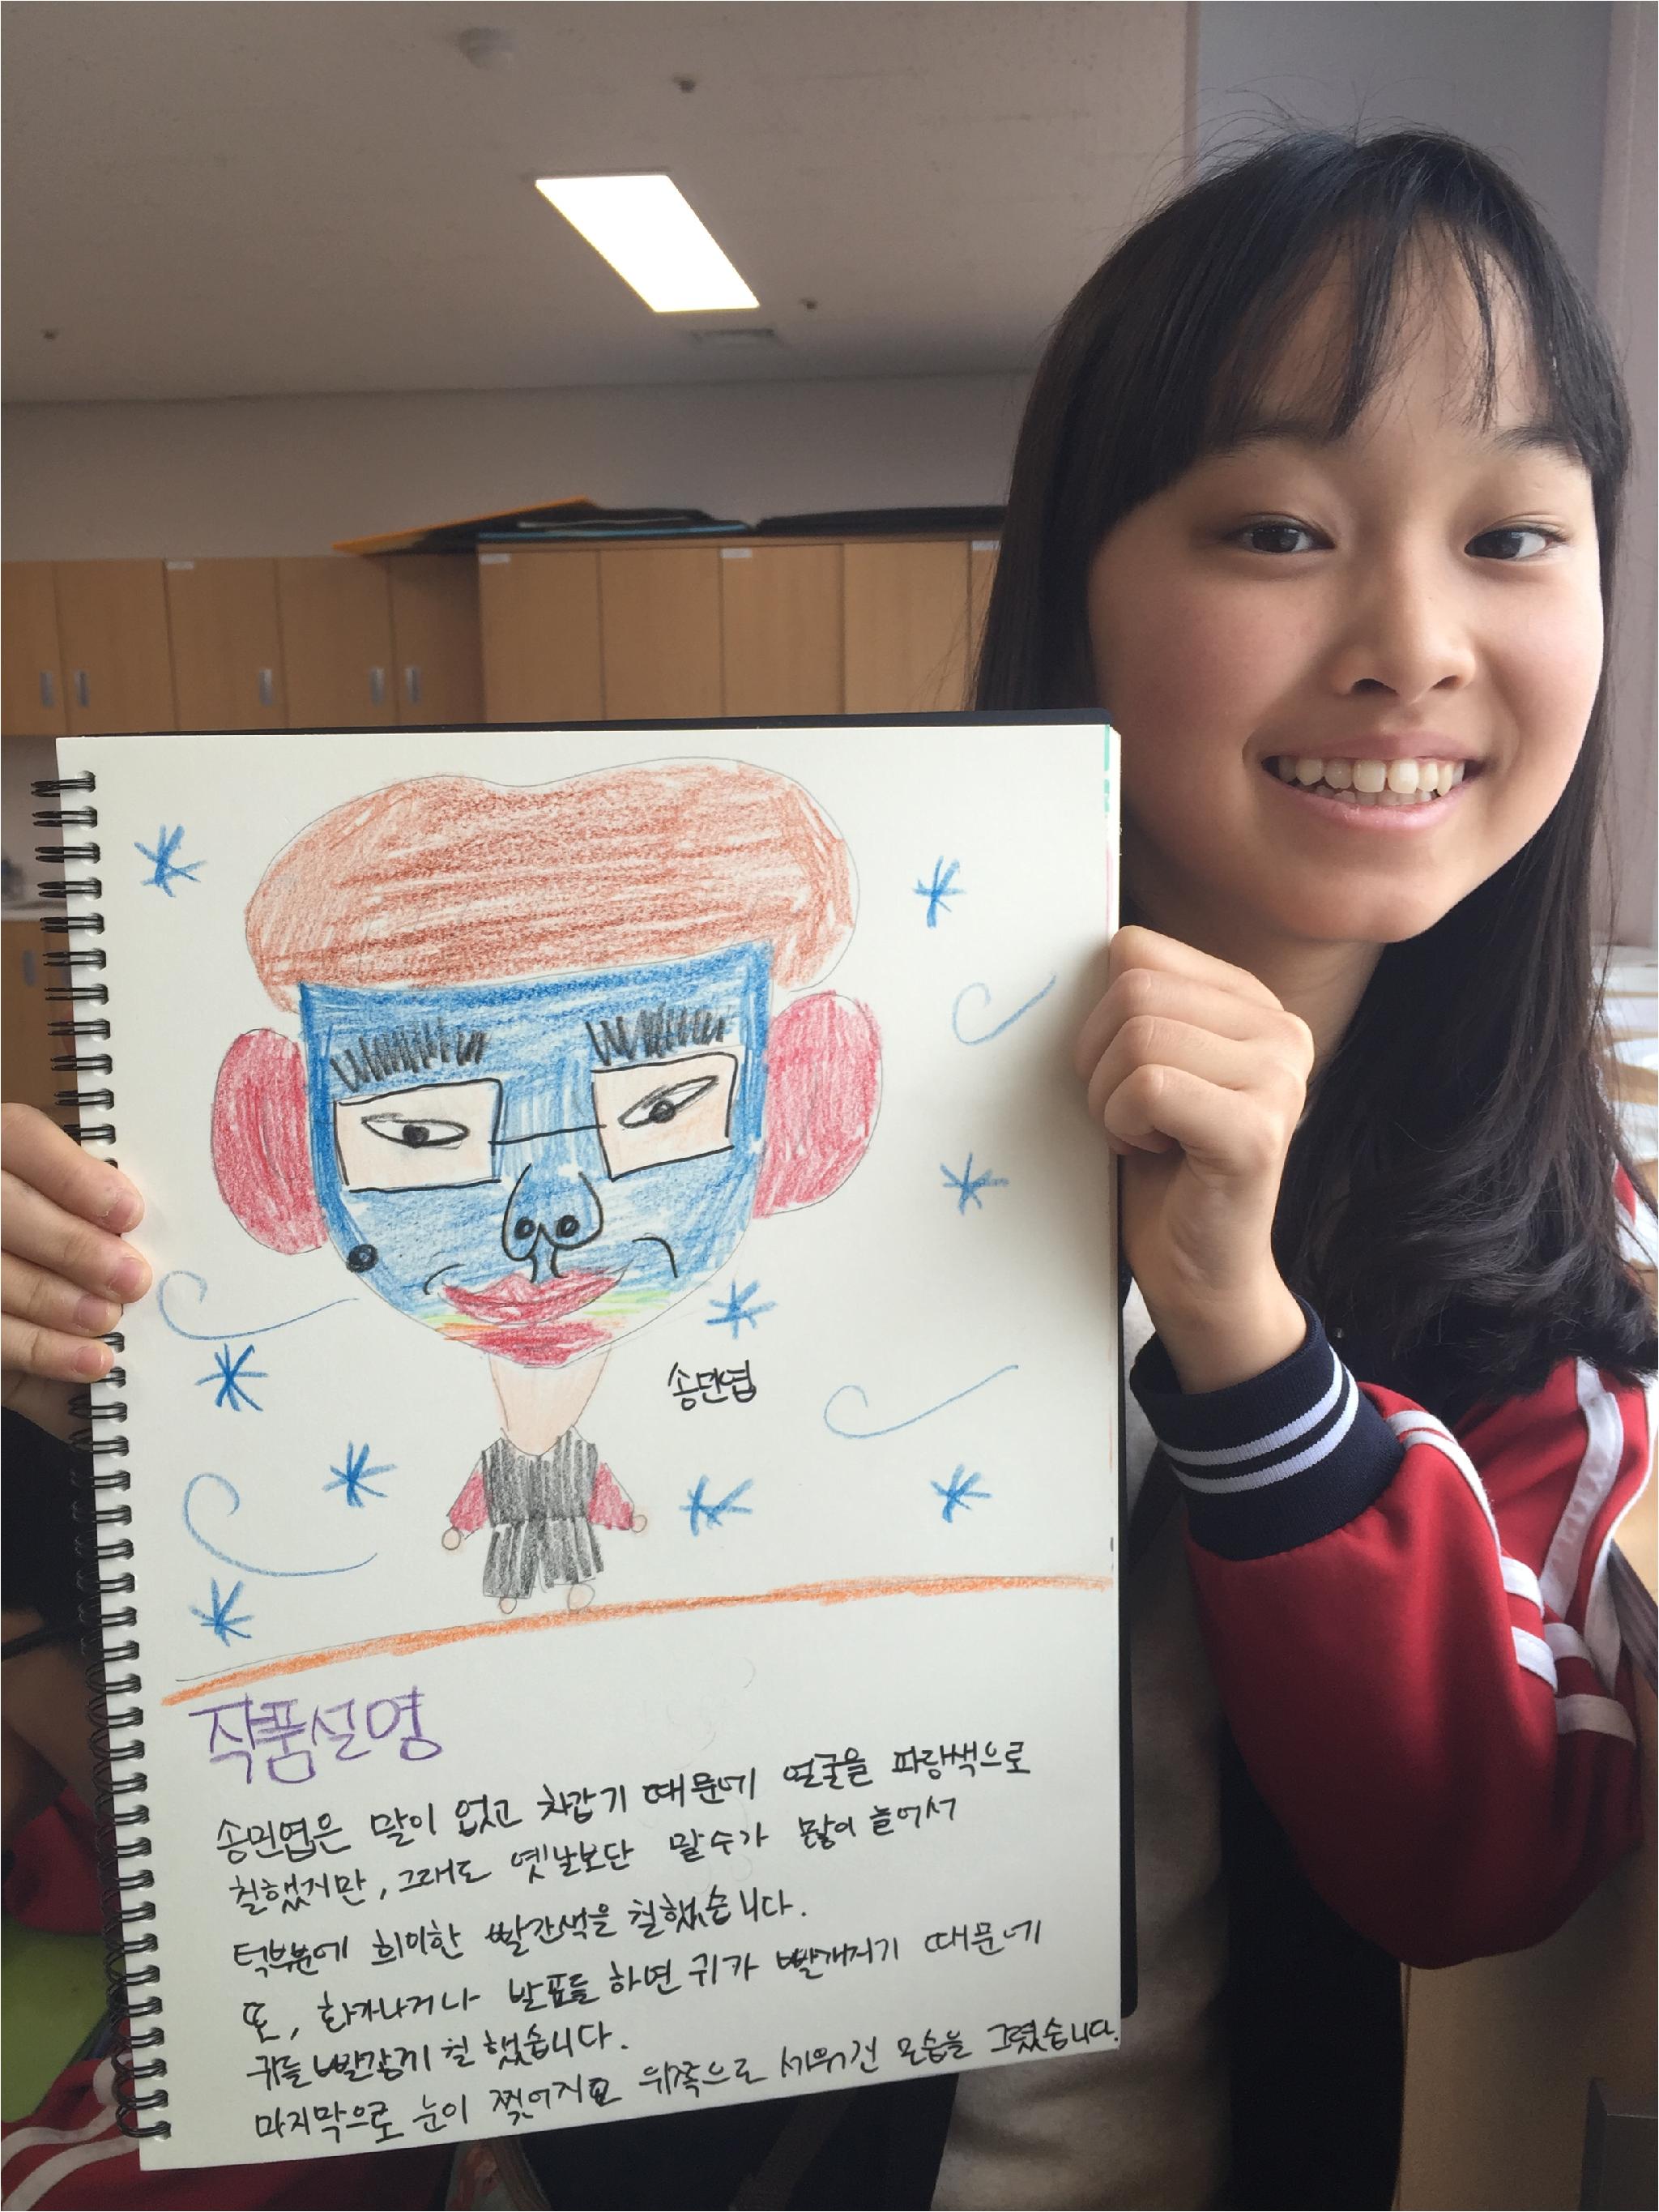 송민엽
작품설명
송민엽은 말이 없고 차갑기 때문에 얼굴을 파랑색으로
칠했지만, 그래도 옛날보단 말수가 많이 늘어서
턱부분에 희미한 빨간색을 칠했습니다.
또, 화가나거나 발표를 하면 귀가 빨개지기 때문에
귀를 빨갛게 칠 했습니다.
마지막으로 눈이 찢어지고 위쪽으로 세워진 모습을 그렸습니다.